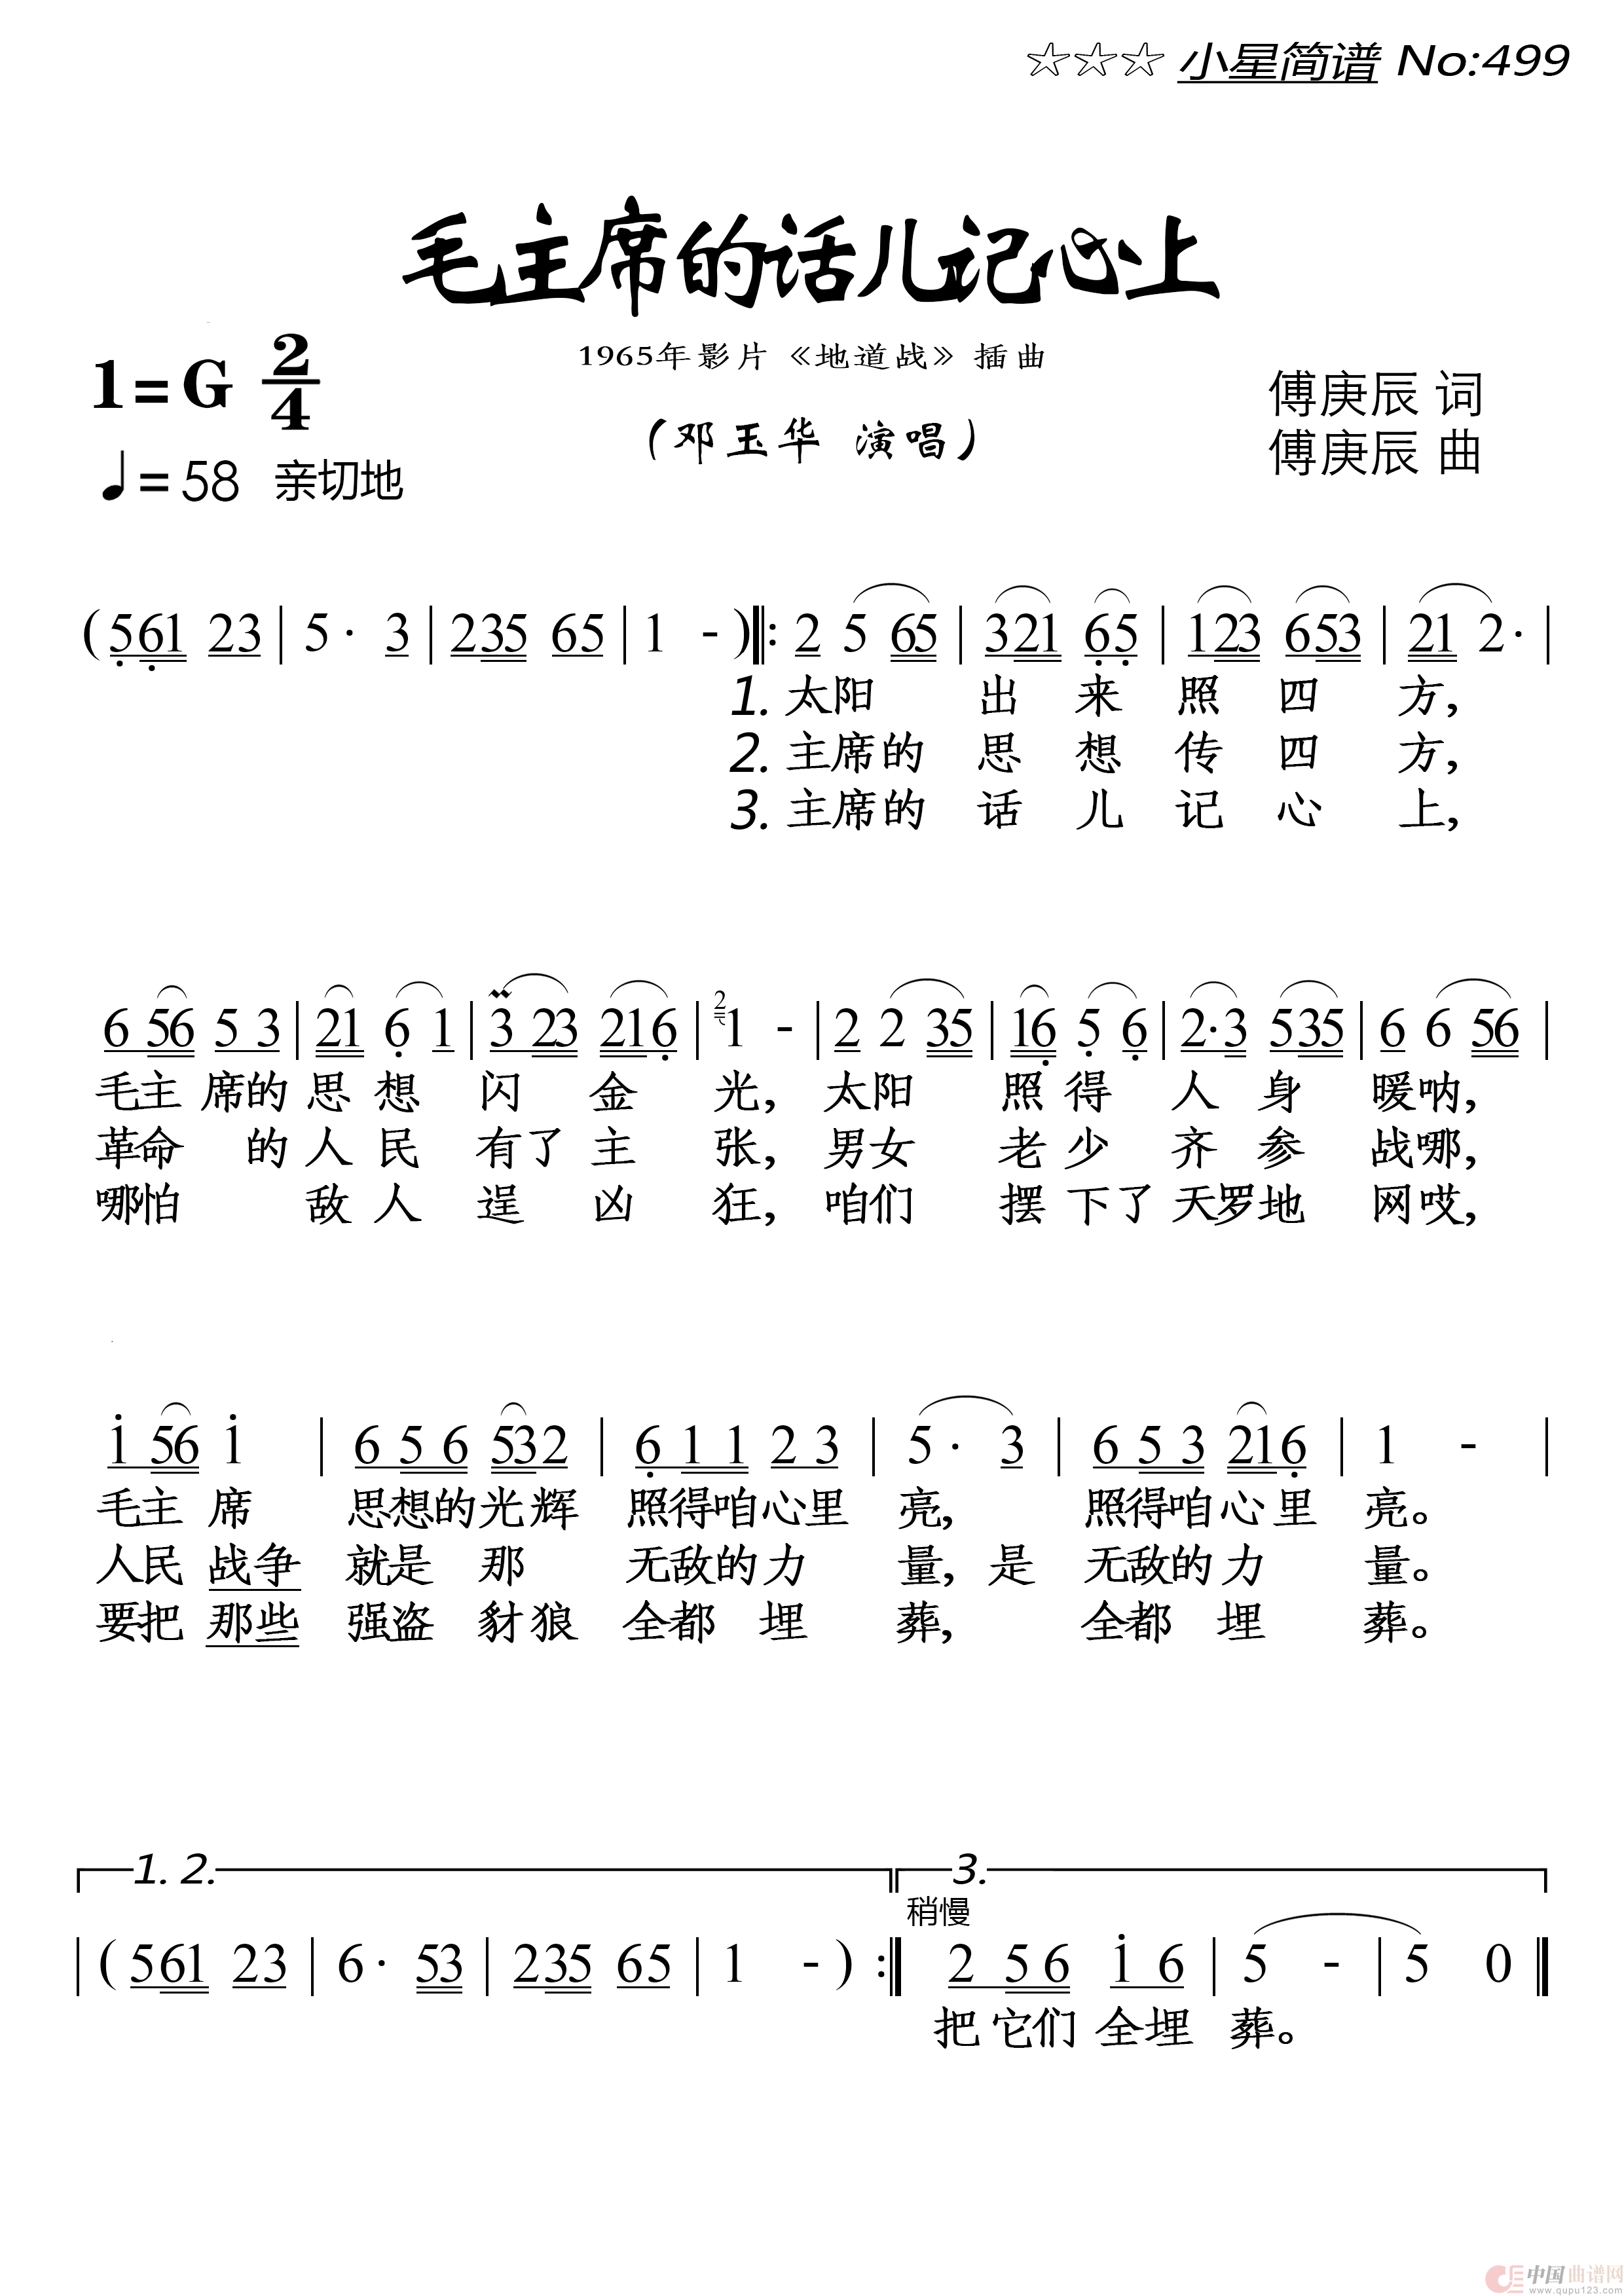 ☆☆☆ 小星简谱 No:499
毛主席的话儿记心上
1965年影片《地道战》插曲
1=G 2/4
傅庚辰 词
（邓玉华 演唱）
傅庚辰 曲
♩=58 亲切地
(561 23 | 5· 3 | 235 65 | 1 - )‖: 2 5 65 | 321 65 | 123 653 | 21 2· |
1. 太阳 出 来 照 四 方，
2. 主席的 思 想 传 四 方，
3. 主席的 话 儿 记 心 上，
6 56 5 3 | 21 6 1 | 3 23 216 | 2 1 - | 2 2 35 | 16 5 6 | 2·3 535 | 6 6 56 |
毛主 席的 思 想 闪 金 光，太阳 照 得 人 身 暖呐，
革命 的 人 民 有了 主 张，男女 老 少 齐 参 战哪，
哪怕 敌 人 逞 凶 狂，咱们 摆 下了 天罗地 网哎，
1 56 1 | 6 5 6 532 | 6 1 1 2 3 | 5· 3 | 6 5 3 216 | 1 - |
毛主 席 思想的光辉 照得咱心里 亮，照得咱心里 亮。
人民 战争 就是 那 无敌的力 量，是 无敌的力 量。
要把 那些 强盗 豺狼 全都 埋 葬，全都 埋 葬。
1. 2. 3.
稍慢
| (561 23 | 6· 53 | 235 65 | 1 - ) :‖ 2 5 6 1 6 | 5 - | 5 0 ‖
把 它们 全埋 葬。
中国曲谱网
www.qupu123.com